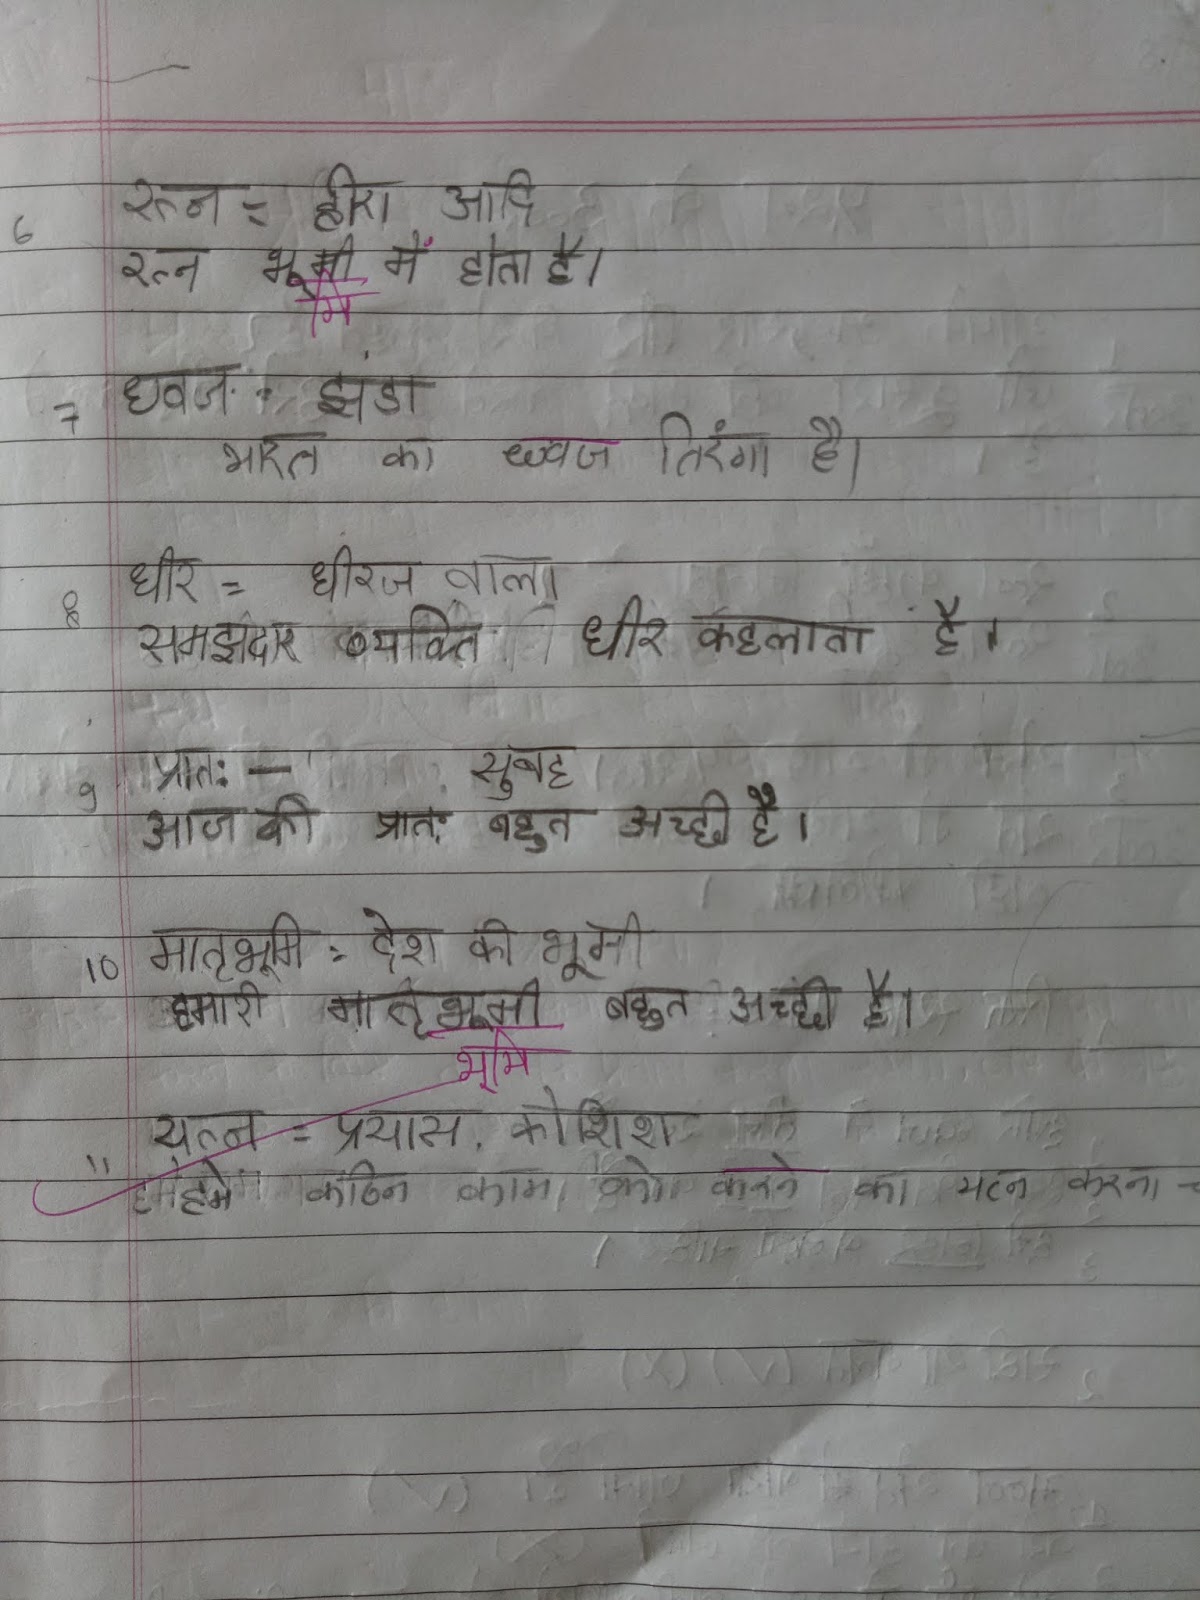 6 रत्न = हीरा आदि
रत्न भूमी में होता है।
मि
7 ध्वज : झंडा
भारत का ध्वज तिरंगा है।
8 धीर = धीरज वाला
समझदार व्यक्ति धीर कहलाता है।
9 प्रातः — सुबह
आज की प्रातः बहुत अच्छी है।
10 मातृभूमि = देश की भूमी
हमारी मातृभूमी बहुत अच्छी है।
भूमि
11 यत्न = प्रयास, कोशिश
हमे कठिन काम को करने का यत्न करना